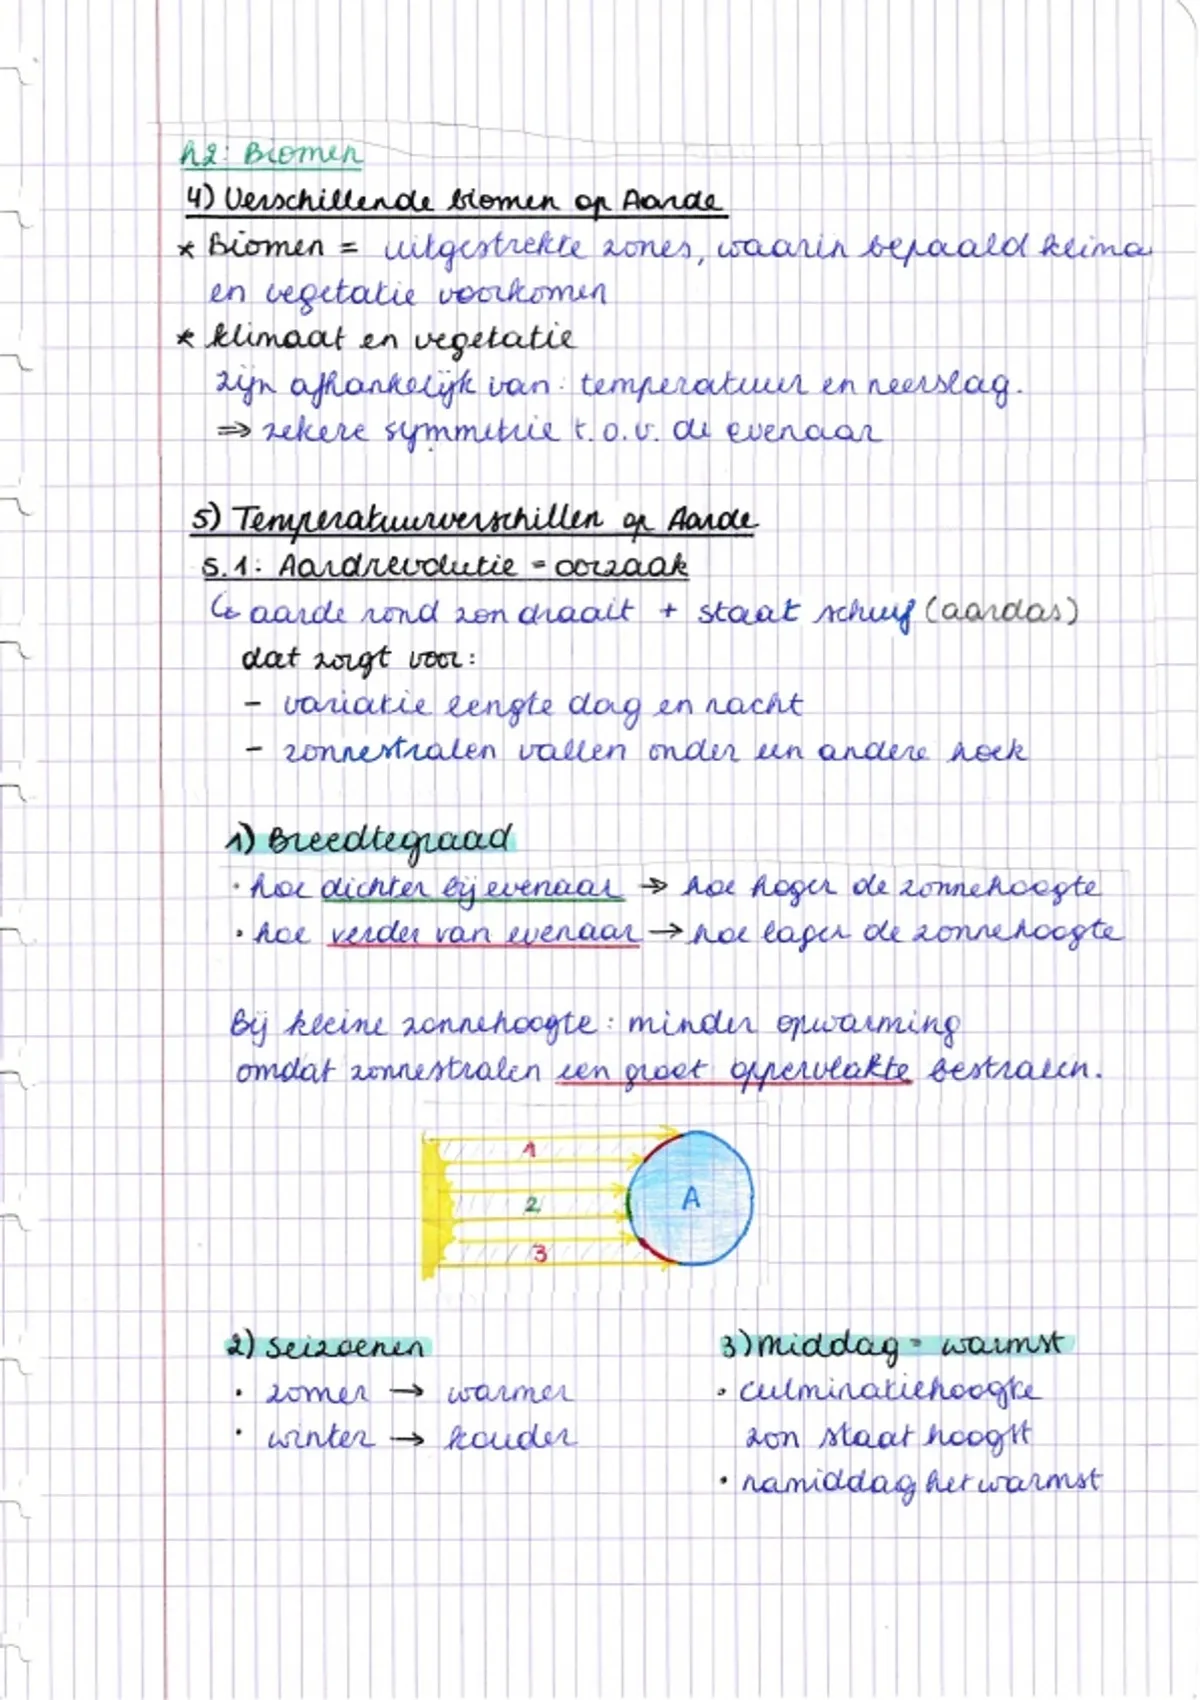 h2: Biomen
4) Verschillende biomen op Aarde
* Biomen = uitgestrekte zones, waarin bepaald klima
en vegetatie voorkomen
* klimaat en vegetatie
zijn afhankelijk van: temperatuur en neerslag.
⇒ zekere symmetrie t.o.v. de evenaar
5) Temperatuurverschillen op Aarde
5.1: Aardrevolutie = oorzaak
↳ aarde rond zon draait + staat schuif (aardas)
dat zorgt voor:
- variatie lengte dag en nacht
- zonnestralen vallen onder een andere hoek
1) Breedtegraad
· hoe dichter bij evenaar → hoe hoger de zonnehoogte
· hoe verder van evenaar → hoe lager de zonnehoogte
Bij kleine zonnehoogte: minder opwarming
omdat zonnestralen een groot oppervlakte bestralen.
1
2
3
A
2) Seizoenen
· zomer → warmer
· winter → kouder
3) middag = warmst
· culminatiehoogte
zon staat hoogst
· namiddag het warmst